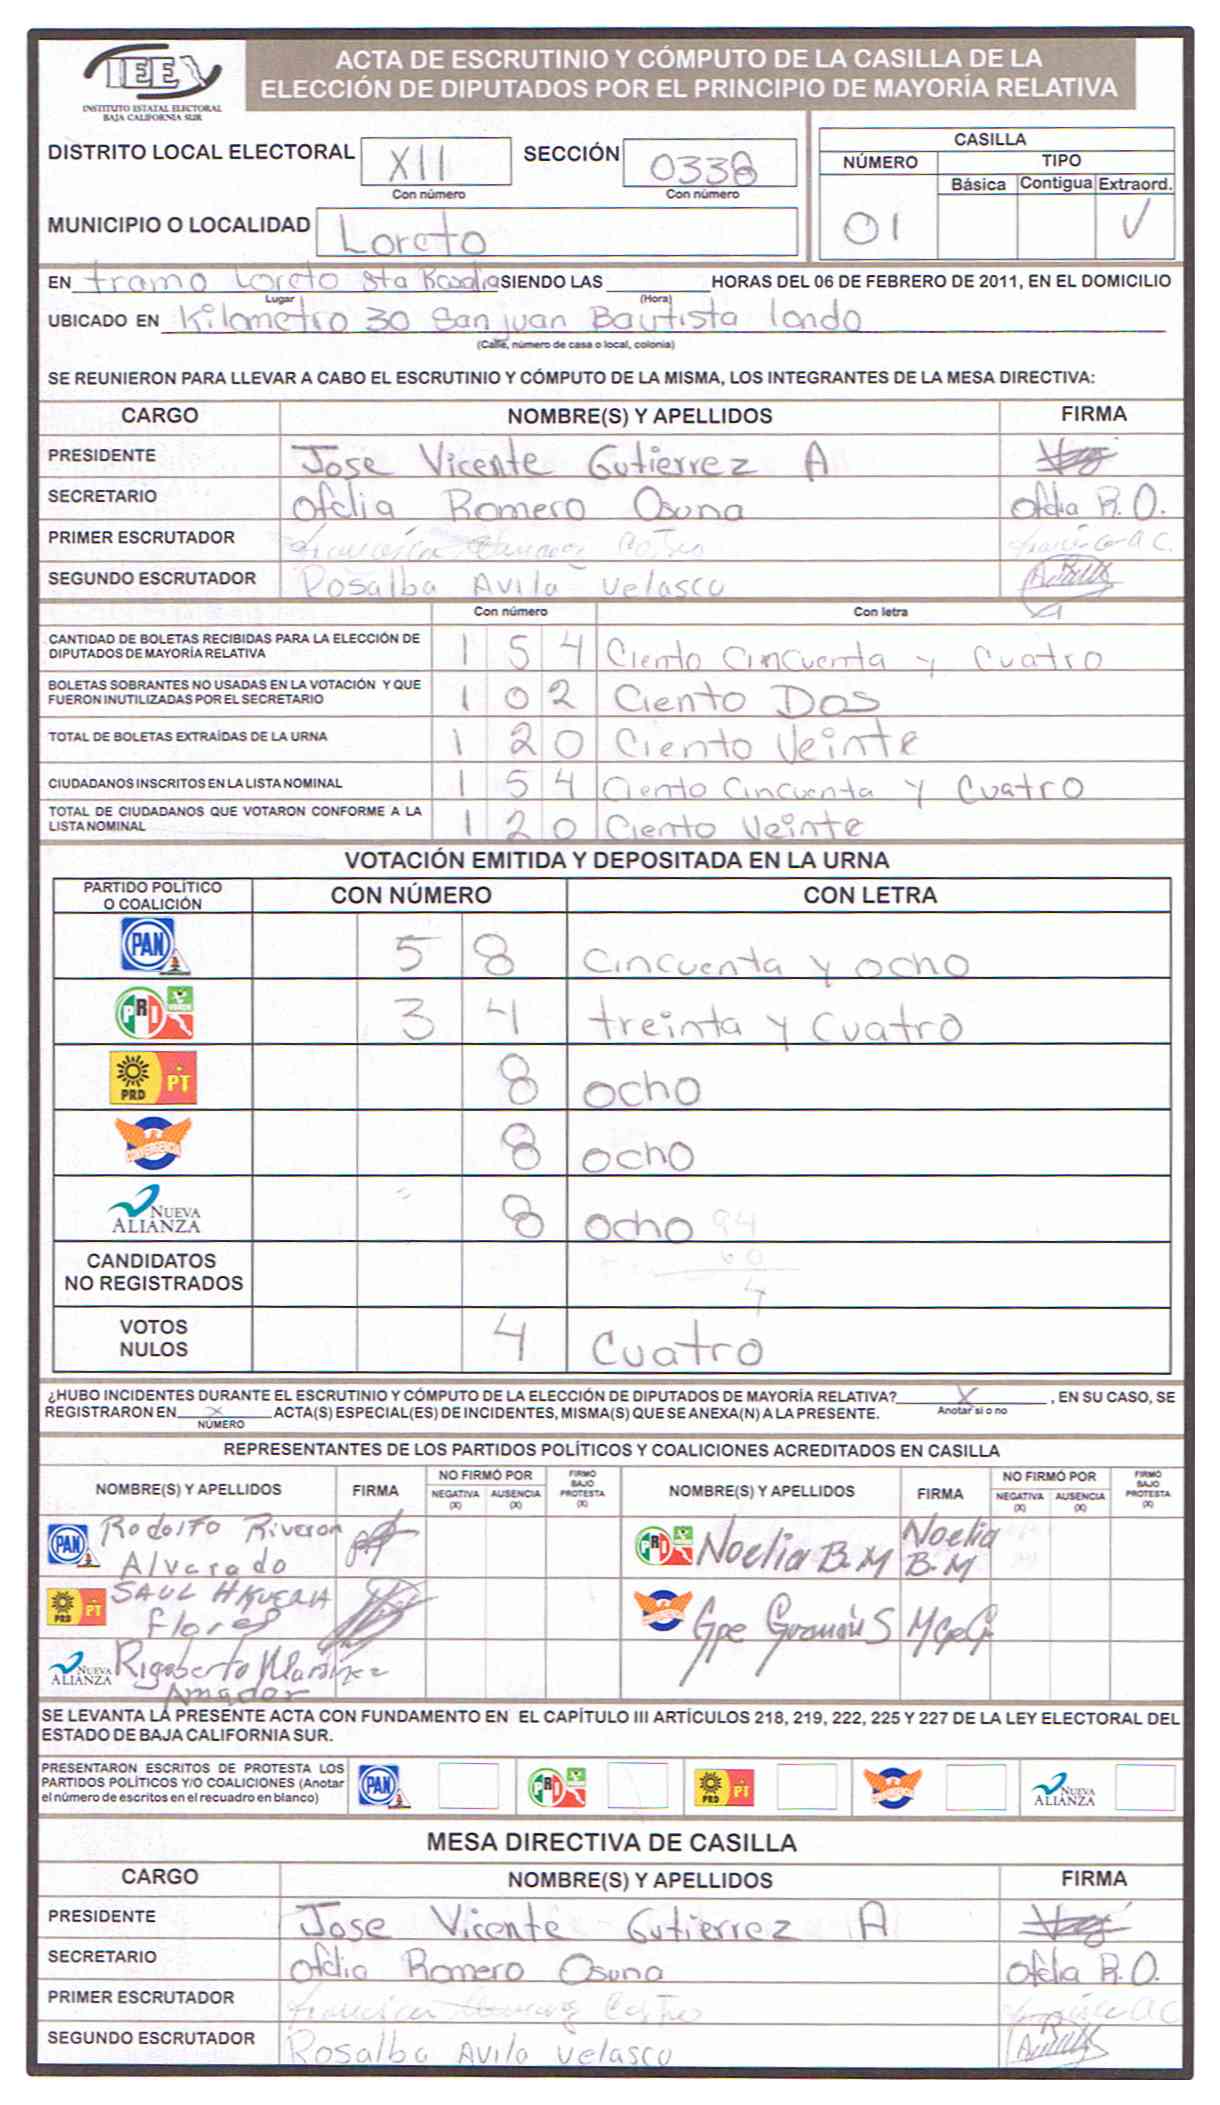 IEE
INSTITUTO ESTATAL ELECTORAL
BAJA CALIFORNIA SUR
ACTA DE ESCRUTINIO Y CÓMPUTO DE LA CASILLA DE LA
ELECCIÓN DE DIPUTADOS POR EL PRINCIPIO DE MAYORÍA RELATIVA
DISTRITO LOCAL ELECTORAL XII SECCIÓN 0338
Con número Con número
MUNICIPIO O LOCALIDAD Loreto
CASILLA
NÚMERO TIPO
Básica Contigua Extraord.
01 ✓
EN tramo Loreto Sta Rosalia SIENDO LAS ________ HORAS DEL 06 DE FEBRERO DE 2011, EN EL DOMICILIO
Lugar (Hora)
UBICADO EN Kilometro 30 San juan Bautista londo
(Calle, número de casa o local, colonia)
SE REUNIERON PARA LLEVAR A CABO EL ESCRUTINIO Y CÓMPUTO DE LA MISMA, LOS INTEGRANTES DE LA MESA DIRECTIVA:
CARGO NOMBRE(S) Y APELLIDOS FIRMA
PRESIDENTE Jose Vicente Gutierrez A
SECRETARIO Ofelia Romero Osuna Ofelia R.O.
PRIMER ESCRUTADOR Castro
SEGUNDO ESCRUTADOR Rosalba Avila Velasco
Con número Con letra
CANTIDAD DE BOLETAS RECIBIDAS PARA LA ELECCIÓN DE
DIPUTADOS DE MAYORÍA RELATIVA 1 5 4 Ciento Cincuenta y Cuatro
BOLETAS SOBRANTES NO USADAS EN LA VOTACIÓN Y QUE
FUERON INUTILIZADAS POR EL SECRETARIO 1 0 2 Ciento Dos
TOTAL DE BOLETAS EXTRAÍDAS DE LA URNA 1 2 0 Ciento Veinte
CIUDADANOS INSCRITOS EN LA LISTA NOMINAL 1 5 4 Ciento Cincuenta y Cuatro
TOTAL DE CIUDADANOS QUE VOTARON CONFORME A LA
LISTA NOMINAL 1 2 0 Ciento Veinte
VOTACIÓN EMITIDA Y DEPOSITADA EN LA URNA
PARTIDO POLÍTICO
O COALICIÓN CON NÚMERO CON LETRA
PAN 5 8 Cincuenta y ocho
PRI 3 4 treinta y Cuatro
PRD PT 8 ocho
CONVERGENCIA 8 ocho
NUEVA ALIANZA 8 ocho 94
60
4
CANDIDATOS
NO REGISTRADOS
VOTOS
NULOS 4 Cuatro
¿HUBO INCIDENTES DURANTE EL ESCRUTINIO Y CÓMPUTO DE LA ELECCIÓN DE DIPUTADOS DE MAYORÍA RELATIVA? X , EN SU CASO, SE
Anotar si o no
REGISTRARON EN X ACTA(S) ESPECIAL(ES) DE INCIDENTES, MISMA(S) QUE SE ANEXA(N) A LA PRESENTE.
NÚMERO
REPRESENTANTES DE LOS PARTIDOS POLÍTICOS Y COALICIONES ACREDITADOS EN CASILLA
NOMBRE(S) Y APELLIDOS FIRMA NO FIRMÓ POR NEGATIVA (X) AUSENCIA (X) FIRMÓ BAJO PROTESTA (X) NOMBRE(S) Y APELLIDOS FIRMA NO FIRMÓ POR NEGATIVA (X) AUSENCIA (X) FIRMÓ BAJO PROTESTA (X)
PAN Rodolfo Riveron
Alvarado
PRI Noelia B.M Noelia
B.M
PRD PT SAUL HIGUERA
Flores
Gpe Guzmán S MGpeG
NUEVA ALIANZA Rigoberto Martinez
Amador
SE LEVANTA LA PRESENTE ACTA CON FUNDAMENTO EN EL CAPÍTULO III ARTÍCULOS 218, 219, 222, 225 Y 227 DE LA LEY ELECTORAL DEL
ESTADO DE BAJA CALIFORNIA SUR.
PRESENTARON ESCRITOS DE PROTESTA LOS
PARTIDOS POLÍTICOS Y/O COALICIONES (Anotar
el número de escritos en el recuadro en blanco)
PAN PRI PRD PT NUEVA ALIANZA
MESA DIRECTIVA DE CASILLA
CARGO NOMBRE(S) Y APELLIDOS FIRMA
PRESIDENTE Jose Vicente Gutierrez A
SECRETARIO Ofelia Romero Osuna Ofelia R.O.
PRIMER ESCRUTADOR Castro
SEGUNDO ESCRUTADOR Rosalba Avila Velasco